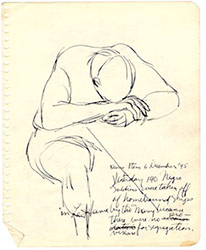 News Item 6 December '45
Yesterday 140 Negro
Soldiers were taken off
of homebound ships
in Le Havre by the Navy because
there were no pro-
visions for segregation.